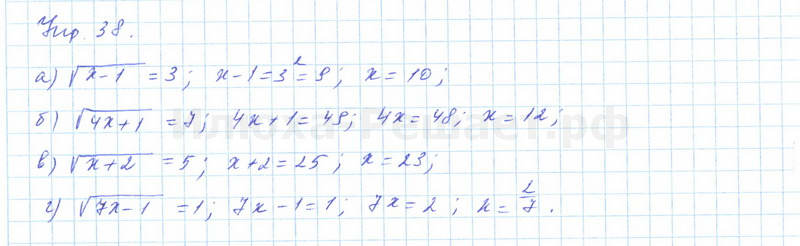 Упр. 38.
а) √(x-1) = 3; x-1=3²=9; x=10;
б) √(4x+1) = 7; 4x+1=49; 4x=48; x=12;
в) √(x+2) = 5; x+2=25; x=23;
г) √(7x-1) = 1; 7x-1=1; 7x=2; x=2/7.
Илюха-Решает.рф